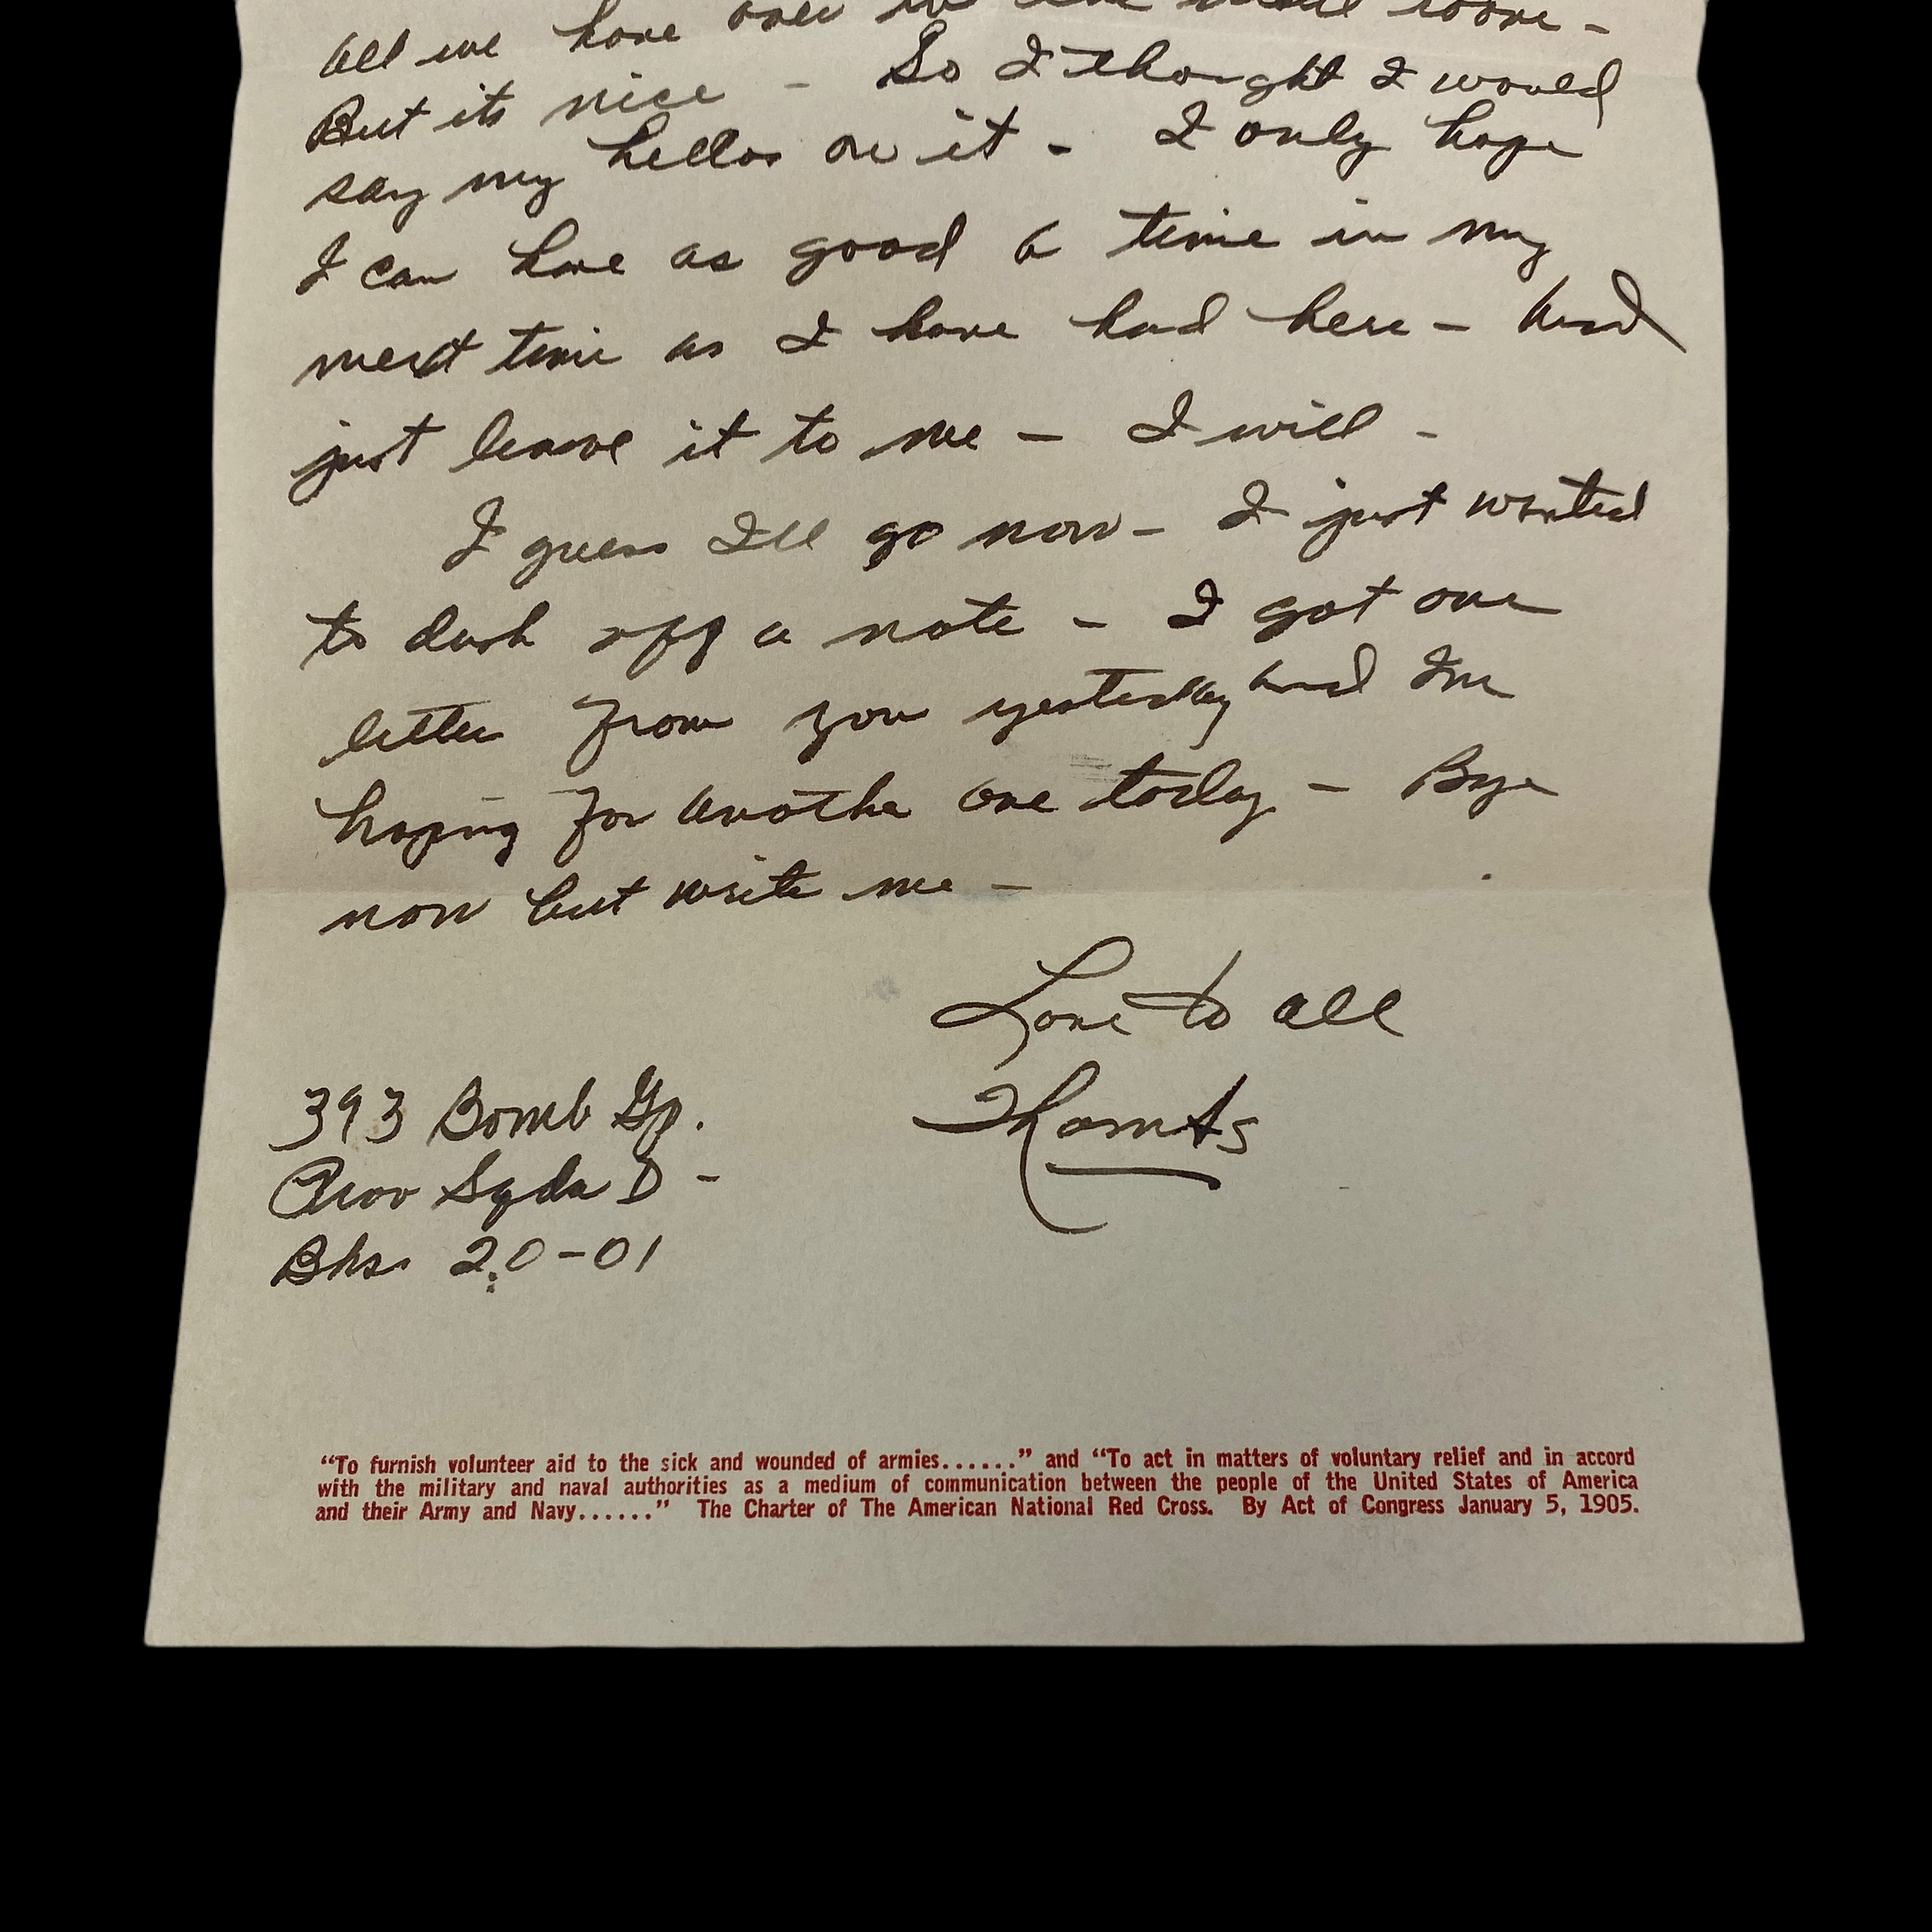 all we have over in the  room -
But its nice - So I thought I would
say my hellos on it - I only hope
I can have as good a time in my
next time as I have had here - And
just leave it to me - I will -
I guess Ill go now - I just wanted
to dash off a note - I got one
letter from you yesterday and Im
hoping for another one today - Bye
now but write me -
Love to all
Thomas
393 Bomb Gp.
Prov Sqdn D -
Bks. 20-01
“To furnish volunteer aid to the sick and wounded of armies......” and “To act in matters of voluntary relief and in accord
with the military and naval authorities as a medium of communication between the people of the United States of America
and their Army and Navy......” The Charter of The American National Red Cross. By Act of Congress January 5, 1905.